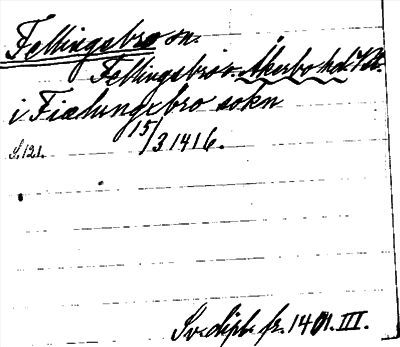 Fellingsbro sn.
Fellingsbro sn. Åkerbo hd Vstm.
i Fiælungxbro sokn
15/3 1416.
S. 121.
Sv. dipl. fr. 1401. III.